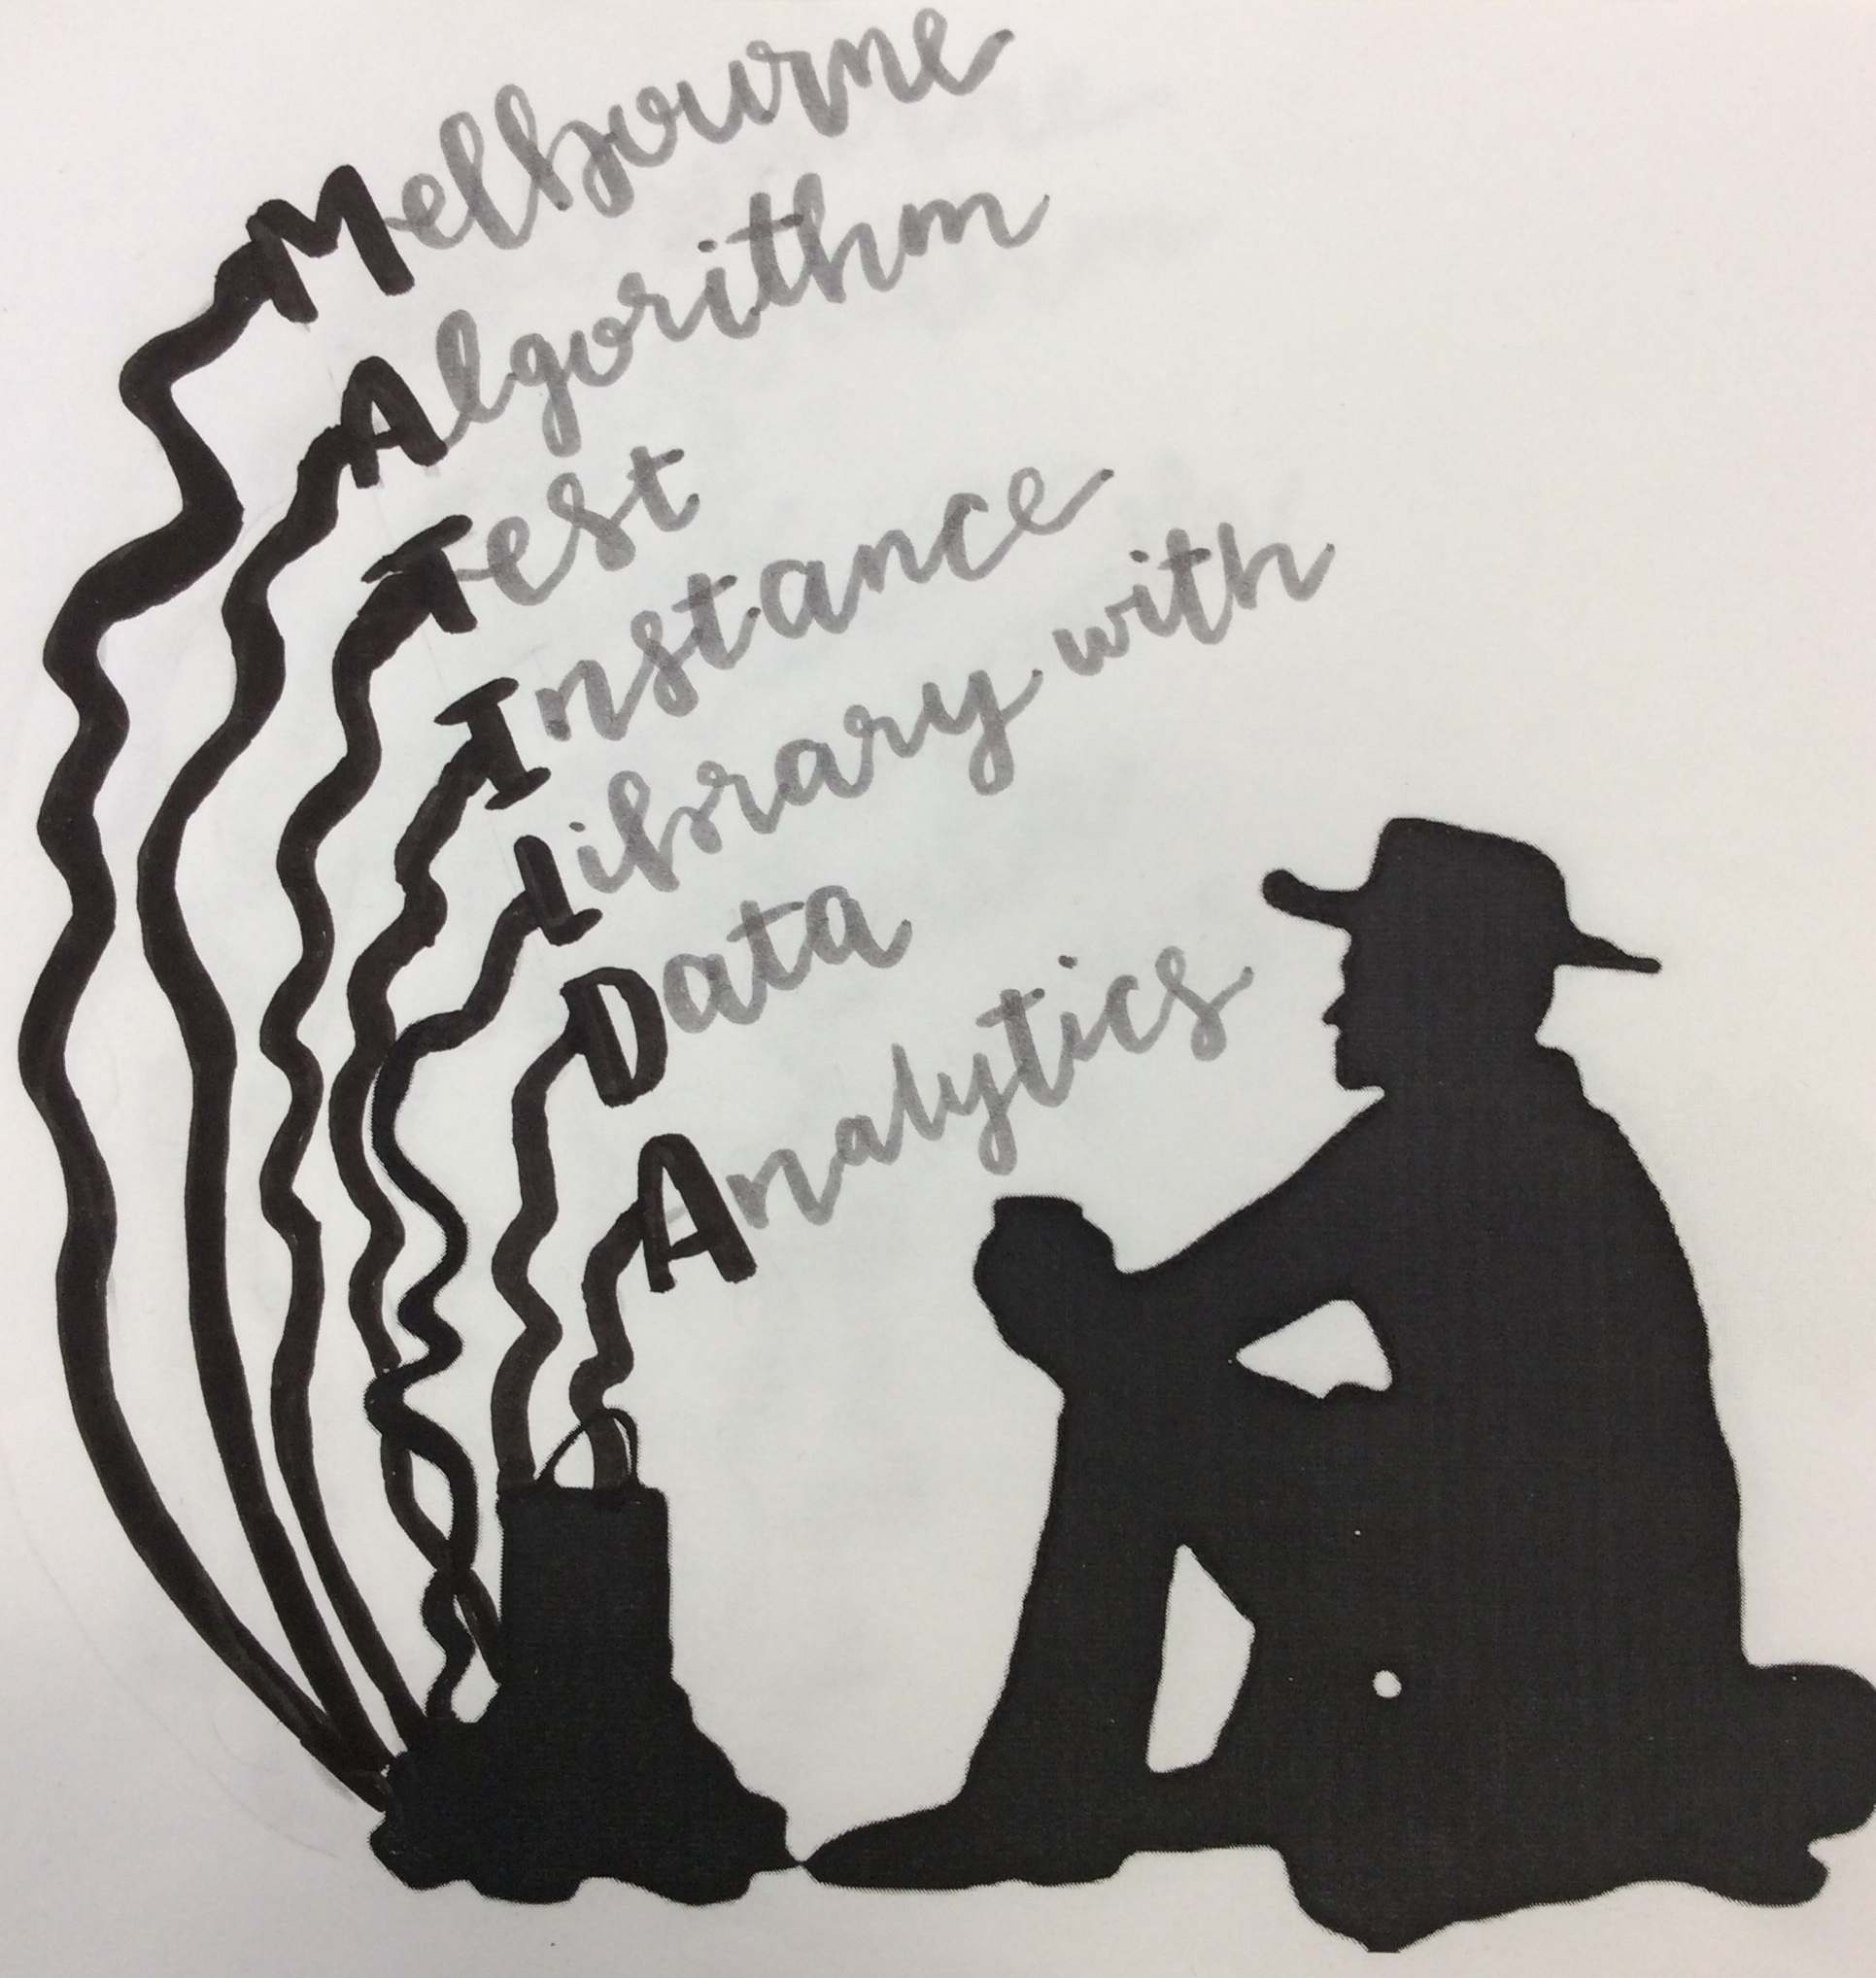 Melbourne
Algorithm
Test
Instance
Library with
Data
Analytics